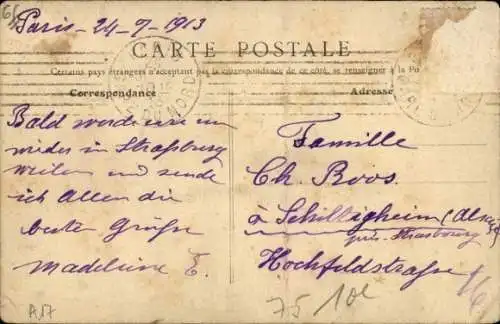 Paris - 24-9-1913
CARTE POSTALE
Certains pays étrangers n'acceptant pas la correspondance de ce côté, se renseigner à la Po
Correspondance
Adresse
Bald werden wir
wieder in Straßburg
weilen und sende
ich Allen die
besten Grüße
Madeleine E.
Famille
Ch. Roos.
à Schilligheim (Als
près Strasbourg)
Hochfeldstraße
75 10e
A17